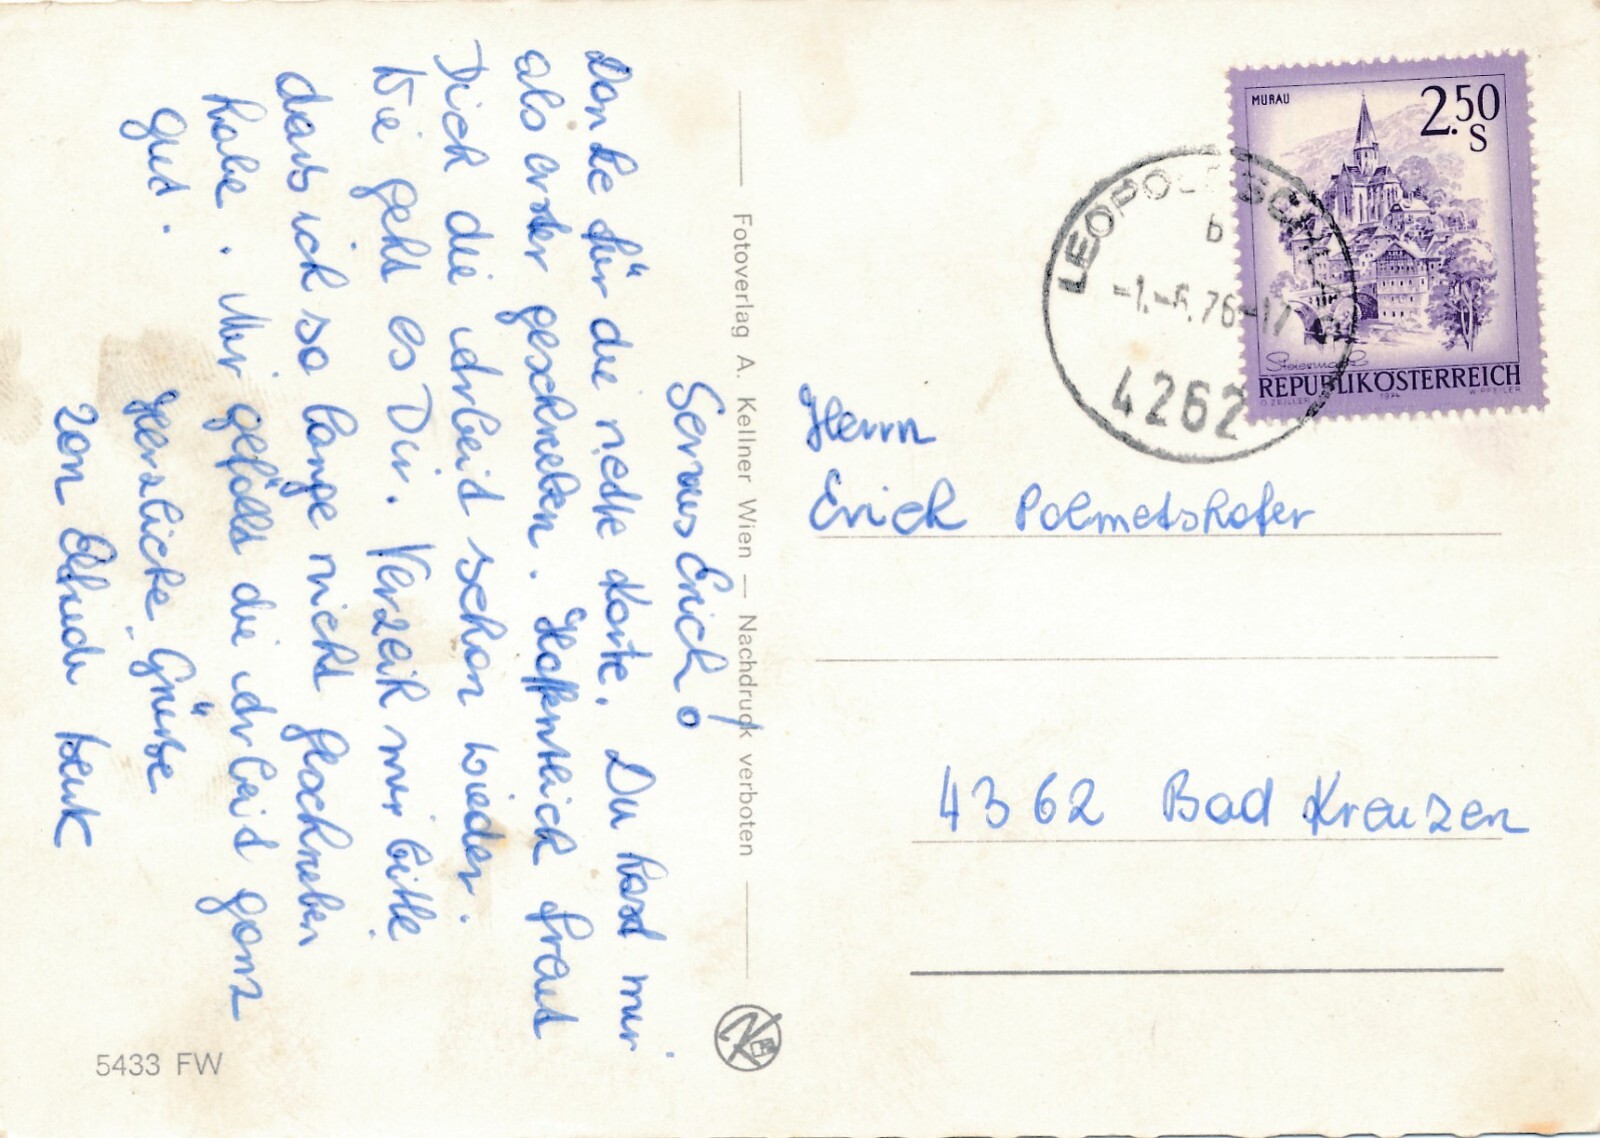 Servus Erich!
Danke für die nette Karte. Du hast mir
als erster geschrieben. Hoffentlich freut
Dich die Arbeit schon wieder.
Wie geht es Dir. Verzeih mir bitte
dass ich so lange nicht geschrieben
habe. Mir gefällt die Arbeit ganz
gut.
Herzliche Grüße
von
Fotoverlag A. Kellner Wien — Nachdruck verboten
5433 FW
MURAU
2.50
S
Steiermark
REPUBLIK ÖSTERREICH
O. ZEILLER 1974 W. PFEILER
LEOPOLDSCHLAG
b
-1.-6.76-17
4262
Herrn
Erich Palmetshofer
4362 Bad Kreuzen